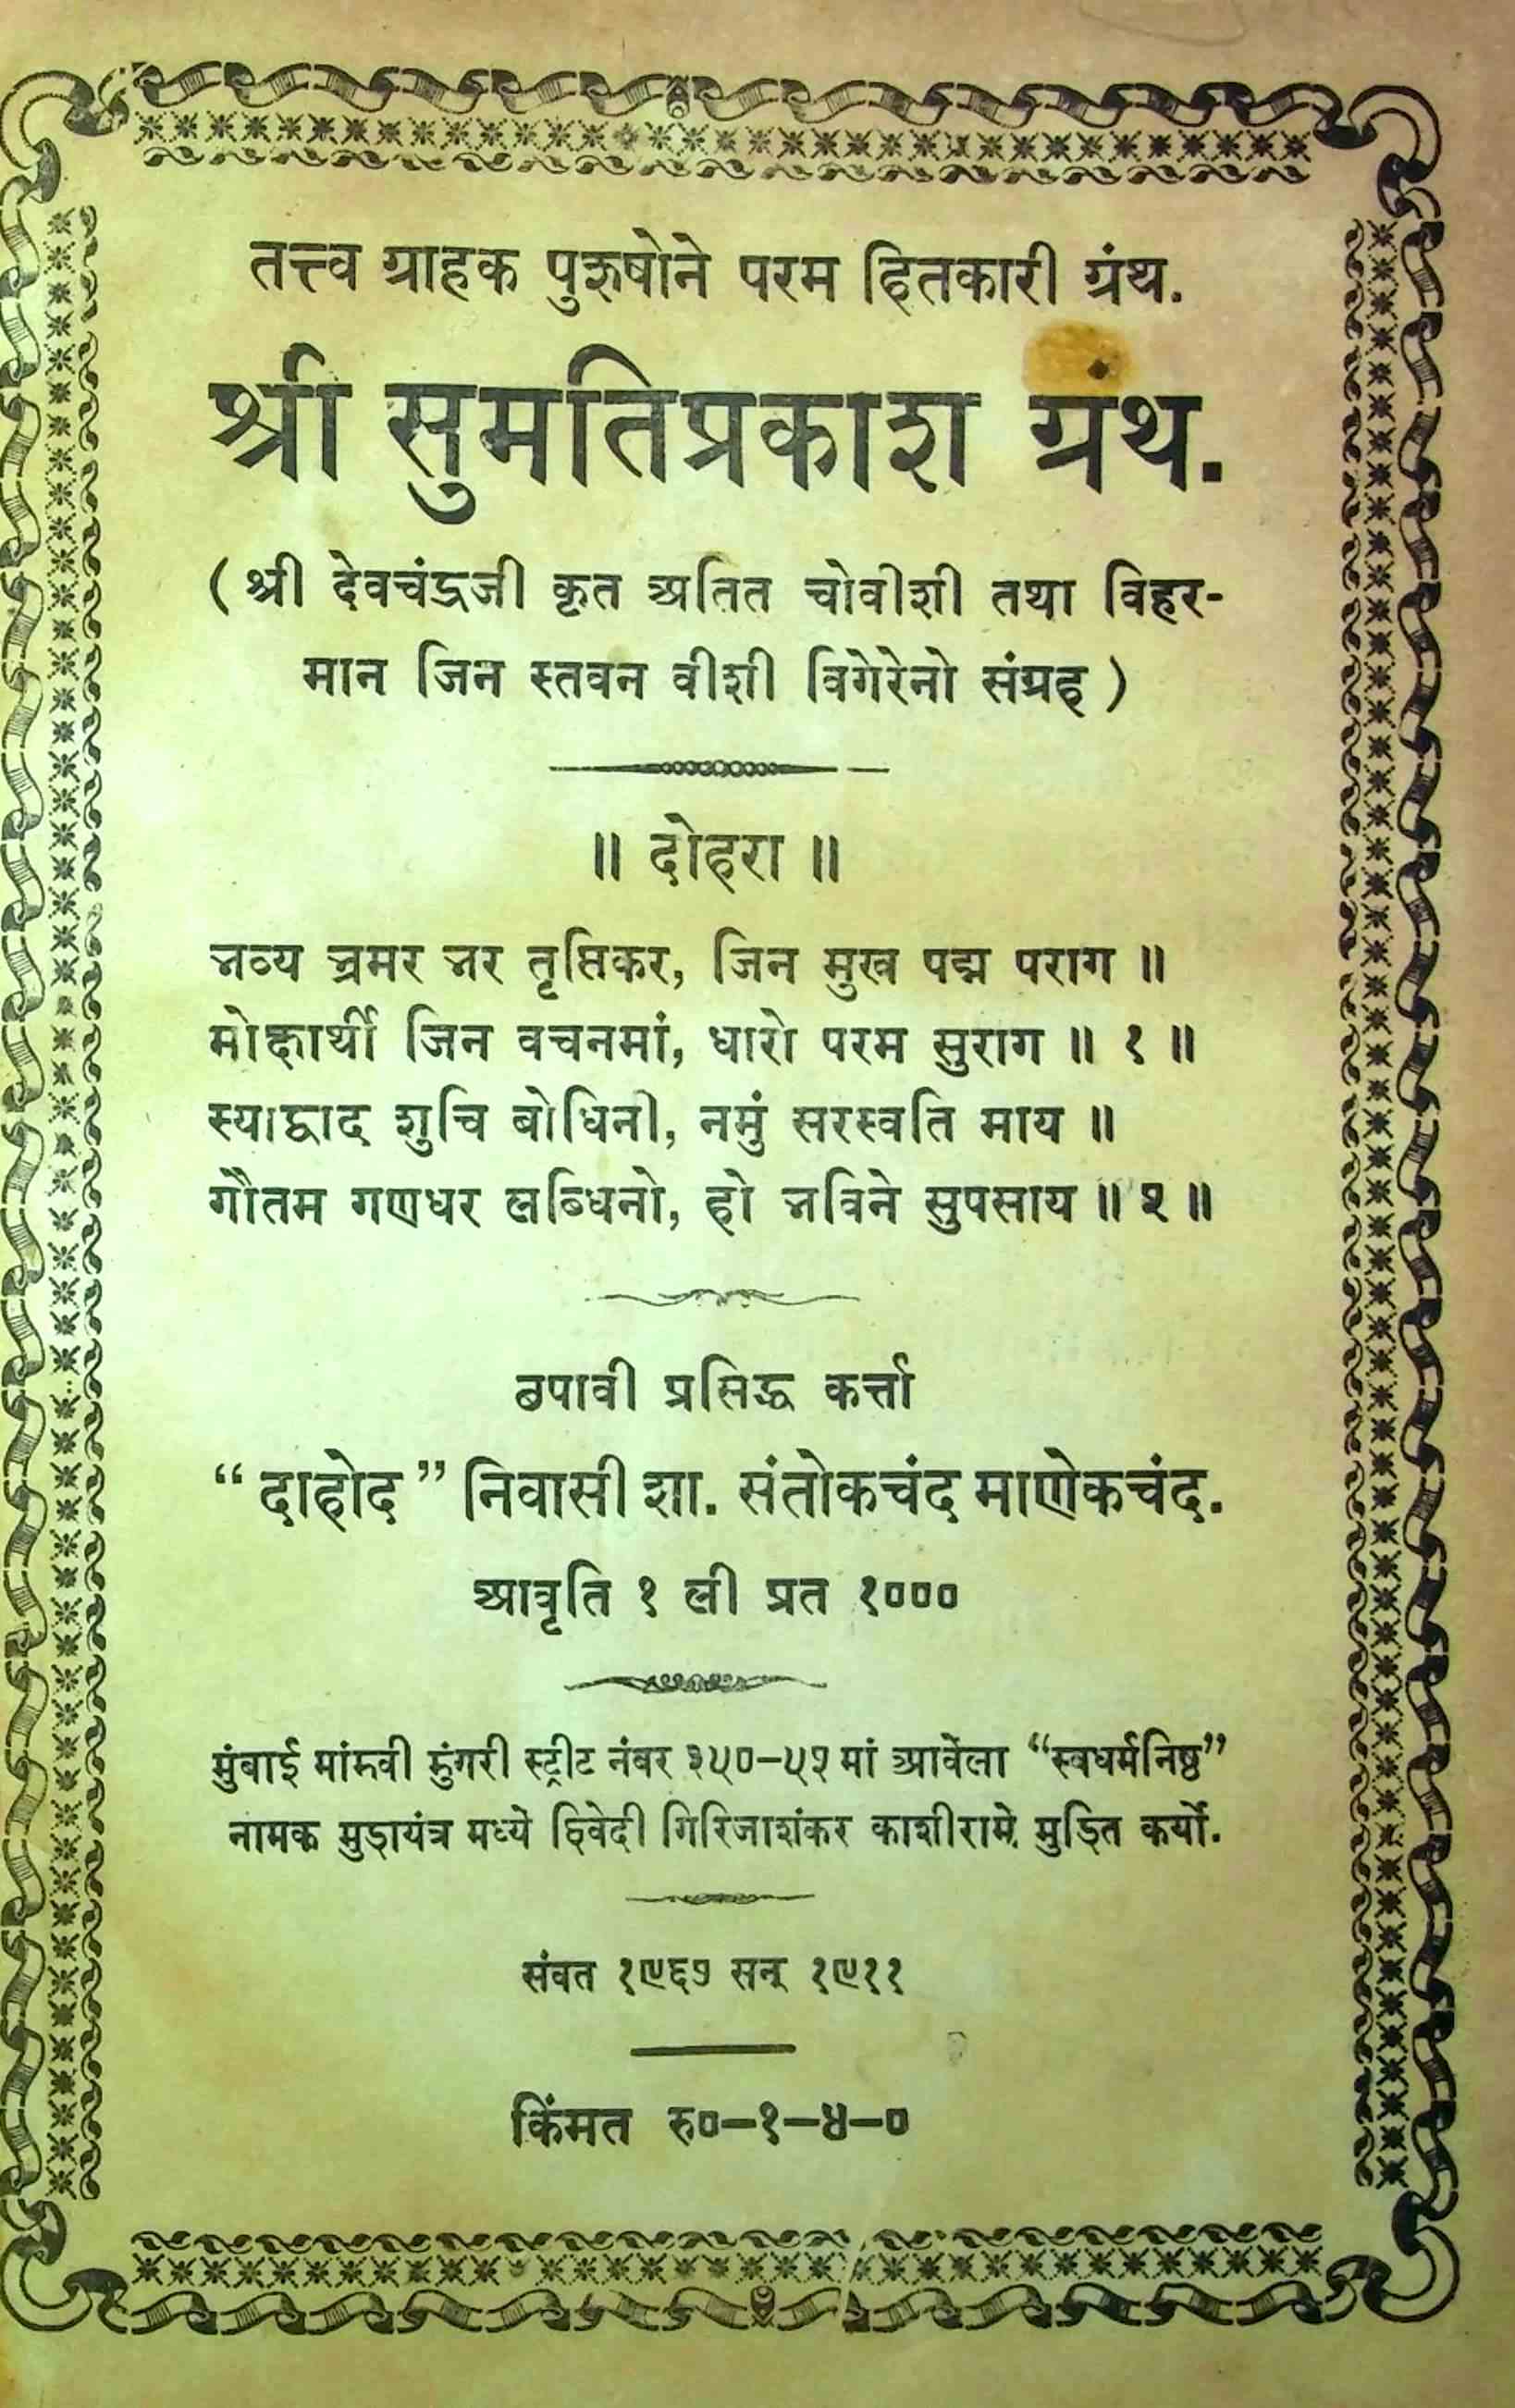 तत्त्व ग्राहक पुरुषोने परम हितकारी ग्रंथ.
श्री सुमतिप्रकाश ग्रंथ.
( श्री देवचंद्रजी कृत अतित चोवीशी तथा विहर-
मान जिन स्तवन वीशी विगेरेनो संग्रह )
॥ दोहरा ॥
भव्य भ्रमर भर तृप्तिकर, जिन मुख पद्म पराग ॥
मोक्षार्थी जिन वचनमां, धारो परम सुराग ॥ १ ॥
स्याद्वाद शुचि बोधिनी, नमुं सरस्वति माय ॥
गौतम गणधर लब्धिनो, हो भविने सुपसाय ॥ २ ॥
छपावी प्रसिद्ध कर्त्ता
“ दाहोद ” निवासी शा. संतोकचंद माणेकचंद.
आवृति १ ली प्रत १०००
मुंबाई मांडवी डुंगरी स्ट्रीट नंबर ३५०-५२ मां आवेला “स्वधर्मनिष्ठ”
नामक मुद्रायंत्र मध्ये द्विवेदी गिरिजाशंकर काशीरामे मुद्रित कर्यो.
संवत १९६७ सन् १९११
किंमत रु०-१-४-०